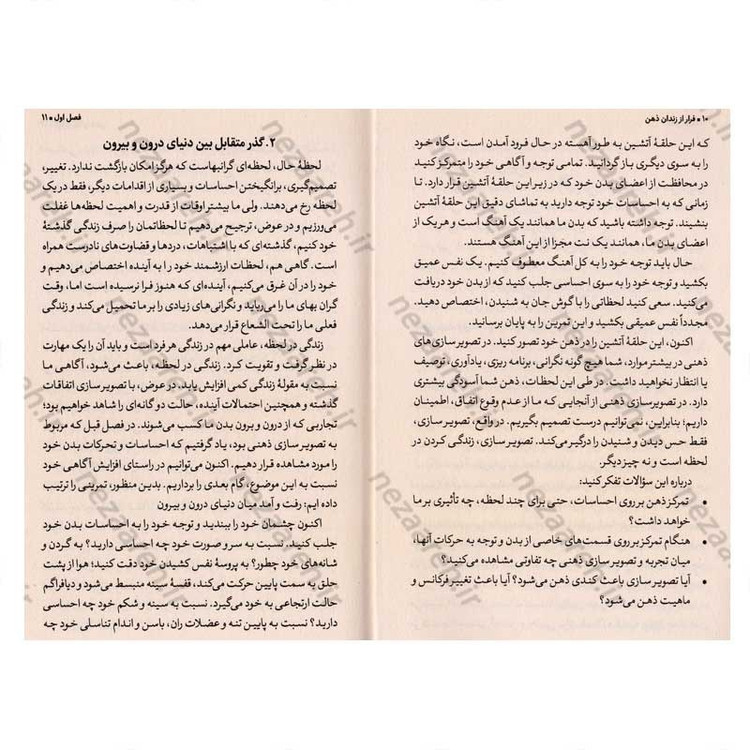 ۱۰ ● فرار از زندان ذهن
که این حلقهٔ آتشین به طور آهسته در حال فرود آمدن است، نگاه خود
را به سوی دیگری بازگردانید. تمامی توجه و آگاهی خود را متمرکز کنید
در محافظت از اعضای بدن خود که در زیر این حلقهٔ آتشین قرار دارد. تا
زمانی که به احساسات خود توجه دارید به تماشای دقیق این حلقهٔ آتشین
بنشینید. توجه داشته باشید که بدن ما همانند یک آهنگ است و هر یک از
اعضای بدن ما، همانند یک نت مجزا از این آهنگ هستند.
حال باید توجه خود را به کل آهنگ معطوف کنیم. یک نفس عمیق
بکشید و توجه خود را به سوی احساسی جلب کنید که از بدن خود دریافت
می‌کنید. سعی کنید لحظاتی را با گوش جان به شنیدن، اختصاص دهید.
مجدداً نفس عمیقی بکشید و این تمرین را به پایان برسانید.
اکنون، این حلقهٔ آتشین را در ذهن خود تصور کنید. در تصویرسازی‌های
ذهنی در بیشتر موارد، شما هیچ گونه نگرانی، برنامه ریزی، یادآوری، توصیف
یا انتظار نخواهید داشت. در طی این لحظات، ذهن شما آسودگی بیشتری
دارد. در تصویرسازی ذهنی از آنجایی که ما از عدم وقوع اتفاق، اطمینان
داریم؛ بنابراین، نمی‌توانیم درست تصمیم بگیریم. در واقع، تصویرسازی،
فقط حس دیدن و شنیدن را درگیر می‌کند. تصویرسازی، زندگی کردن در
لحظه است و نه چیز دیگر.
درباره این سؤالات تفکر کنید:
• تمرکز ذهن بر روی احساسات، حتی برای چند لحظه، چه تأثیری بر ما
خواهد داشت؟
• هنگام تمرکز بر روی قسمت‌های خاصی از بدن و توجه به حرکات آنها،
میان تجربه و تصویرسازی ذهنی چه تفاوتی مشاهده می‌کنید؟
• آیا تصویرسازی باعث کندی ذهن می‌شود؟ آیا باعث تغییر فرکانس و
ماهیت ذهن می‌شود؟
فصل اول ● ۱۱
۲. گذر متقابل بین دنیای درون و بیرون
لحظهٔ حال، لحظه‌ای گرانبهاست که هرگز امکان بازگشت ندارد. تغییر،
تصمیم‌گیری، برانگیختن احساسات و بسیاری از اقدامات دیگر، فقط در یک
لحظه رخ می‌دهند. ولی ما بیشتر اوقات از قدرت و اهمیت لحظه‌ها غفلت
می‌ورزیم و در عوض، ترجیح می‌دهیم تا لحظاتمان را صرف زندگی گذشتهٔ
خود کنیم، گذشته‌ای که با اشتباهات، دردها و قضاوت‌های نادرست همراه
است. گاهی هم، لحظات ارزشمند خود را به آینده اختصاص می‌دهیم و
خود را در آن غرق می‌کنیم، آینده‌ای که هنوز فرا نرسیده است اما، وقت
گران بهای ما را می‌رباید و نگرانی‌های زیادی را بر ما تحمیل می‌کند و زندگی
فعلی ما را تحت الشعاع قرار می‌دهد.
زندگی در لحظه، عاملی مهم در زندگی هر فرد است و باید آن را یک مهارت
در نظر گرفت و تقویت کرد. زندگی در لحظه، باعث می‌شود، آگاهی ما
نسبت به مقولهٔ زندگی کمی افزایش یابد. در عوض، با تصویر سازی اتفاقات
گذشته و همچنین احتمالات آینده، حالت دو گانه‌ای را شاهد خواهیم بود؛
تجاربی که از درون و برون بدن ما کسب می‌شوند. در فصل قبل که مربوط
به تصویر سازی ذهنی بود، یاد گرفتیم که احساسات و تحرکات بدن خود
را مورد مشاهده قرار دهیم. اکنون می‌توانیم در راستای افزایش آگاهی خود
نسبت به این موضوع، گام بعدی را برداریم. بدین منظور، تمرینی را ترتیب
داده ایم: رفت و آمد میان دنیای درون و بیرون
اکنون چشمان خود را ببندید و توجه خود را به احساسات بدن خود
جلب کنید. نسبت به سر و صورت خود چه احساسی دارید؟ به گردن و
شانه‌های خود چطور؟ به پروسهٔ نفس کشیدن خود دقت کنید؛ هوا از پشت
حلق به سمت پایین حرکت می‌کند، قفسهٔ سینه منبسط می‌شود و دیافراگم
حالت ارتجاعی به خود می‌گیرد. نسبت به سینه و شکم خود چه احساسی
دارید؟ نسبت به پایین تنه و عضلات ران، باسن و اندام تناسلی خود چه
nezaareh.ir